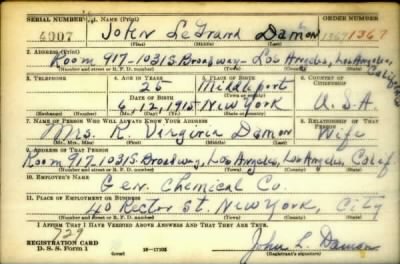 SERIAL NUMBER 1. NAME (Print) ORDER NUMBER
4007 John LeGrand Damon 1367
(First) (Middle) (Last)
2. ADDRESS (Print)
Room 917-1031 S. Broadway- Los Angeles, Los Angeles, Calif
(Number and street or R. F. D. number) (Town) (County) (State)
3. TELEPHONE 4. AGE IN YEARS 5. PLACE OF BIRTH 6. COUNTRY OF CITIZENSHIP
25 Middleport
DATE OF BIRTH
6, 12, 1915 New York U.S.A.
(Exchange) (Number) (Mo.) (Day) (Yr.) (State or country)
7. NAME OF PERSON WHO WILL ALWAYS KNOW YOUR ADDRESS 8. RELATIONSHIP OF THAT PERSON
Mrs. R. Virginia Damon Wife
(Mr., Mrs., Miss) (First) (Middle) (Last)
9. ADDRESS OF THAT PERSON
Room 917, 1031 S. Broadway, Los Angeles, Los Angeles, Calif
(Number and street or R. F. D. number) (Town) (County) (State)
10. EMPLOYER'S NAME
Gen. Chemical Co.
11. PLACE OF EMPLOYMENT OR BUSINESS
40 Rector St. New York, City
(Number and street or R. F. D. number) (Town) (County) (State)
I AFFIRM THAT I HAVE VERIFIED ABOVE ANSWERS AND THAT THEY ARE TRUE.
729
REGISTRATION CARD
D. S. S. Form 1 (over) John L. Damon
(Registrant's signature)